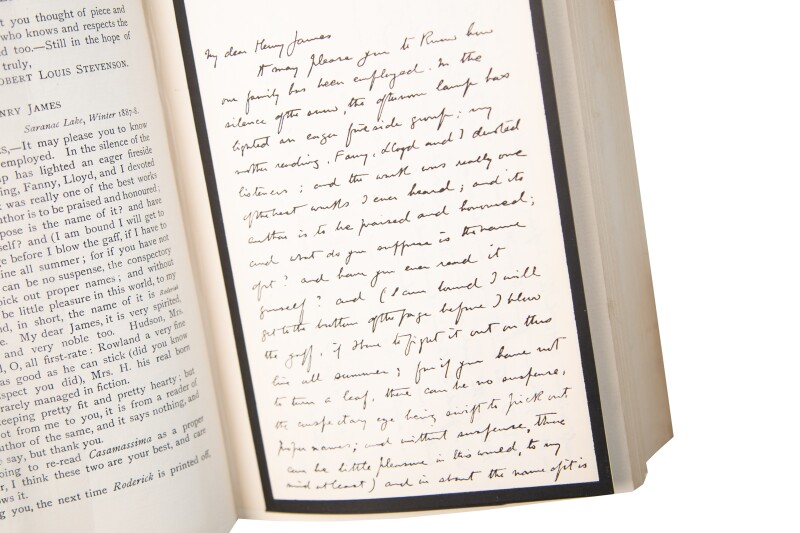 t you thought of piece and
who knows and respects the
d too.—Still in the hope of
truly,
OBERT LOUIS STEVENSON.
NRY JAMES
Saranac Lake, Winter 1887-8.
S,—It may please you to know
employed. In the silence of the
p has lighted an eager fireside
ing, Fanny, Lloyd, and I devoted
k was really one of the best works
uthor is to be praised and honoured;
pose is the name of it? and have
self? and (I am bound I will get to
ge before I blow the gaff, if I have to
ine all summer; for if you have not
can be no suspense, the conspectory
pick out proper names; and without
be little pleasure in this world, to my
nd, in short, the name of it is Roderick
e. My dear James, it is very spirited,
and very noble too. Hudson, Mrs.
l, O, all first-rate: Rowland a very fine
as good as he can stick (did you know
spect you did), Mrs. H. his real born
rarely managed in fiction.
eeping pretty fit and pretty hearty; but
ot from me to you, it is from a reader of
uthor of the same, and it says nothing, and
say, but thank you.
oing to re-read Casamassima as a proper
r, I think these two are your best, and care
ows it.
g you, the next time Roderick is printed off,
My dear Henry James
It may please you to know how
our family has been employed. In the
silence of the snow, the afternoon lamp has
lighted an eager fireside group; my
mother reading, Fanny, Lloyd and I devoted
listeners; and the work was really one
of the best works I ever heard; and its
author is to be praised and honoured;
and what do you suppose is the name
of it? and have you ever read it
yourself? and (I am bound I will
get to the bottom of the page before I blow
the gaff, if I have to fight it out on this
line all summer; for if you have not
to turn a leaf, there can be no suspense,
the conspectory eye being swift to pick out
proper names; and without suspense, there
can be little pleasure in this world, to my
mind at least) and is about the name of it is